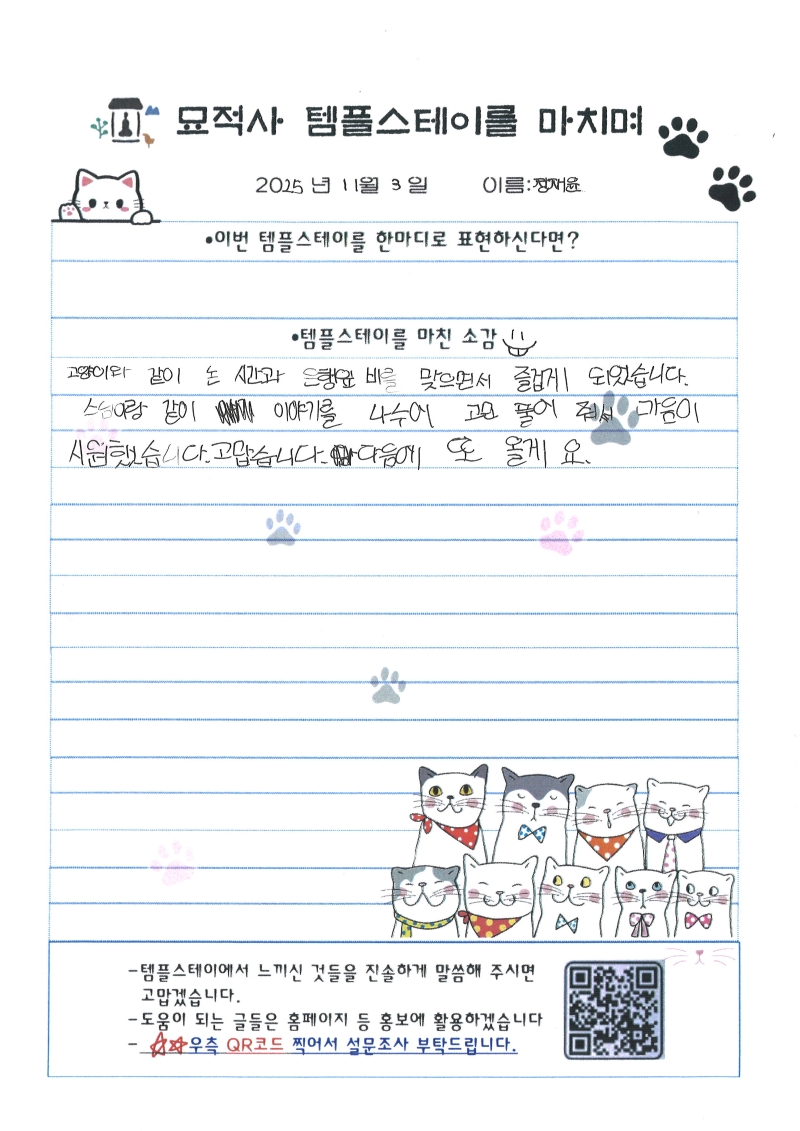 묘적사 템플스테이를 마치며
2025 년 11월 3일 이름:정재윤
•이번 템플스테이를 한마디로 표현하신다면?
•템플스테이를 마친 소감
고양이와 같이 논 시간과 은행잎 비를 맞으면서 즐겁게 되었습니다.
스님이랑 같이 이야기를 나누어 고민 풀어 줘서 마음이
시원했습니다. 고맙습니다. 다음에 또 올게 요.
-템플스테이에서 느끼신 것들을 진솔하게 말씀해 주시면
고맙겠습니다.
-도움이 되는 글들은 홈페이지 등 홍보에 활용하겠습니다
- 우측 QR코드 찍어서 설문조사 부탁드립니다.